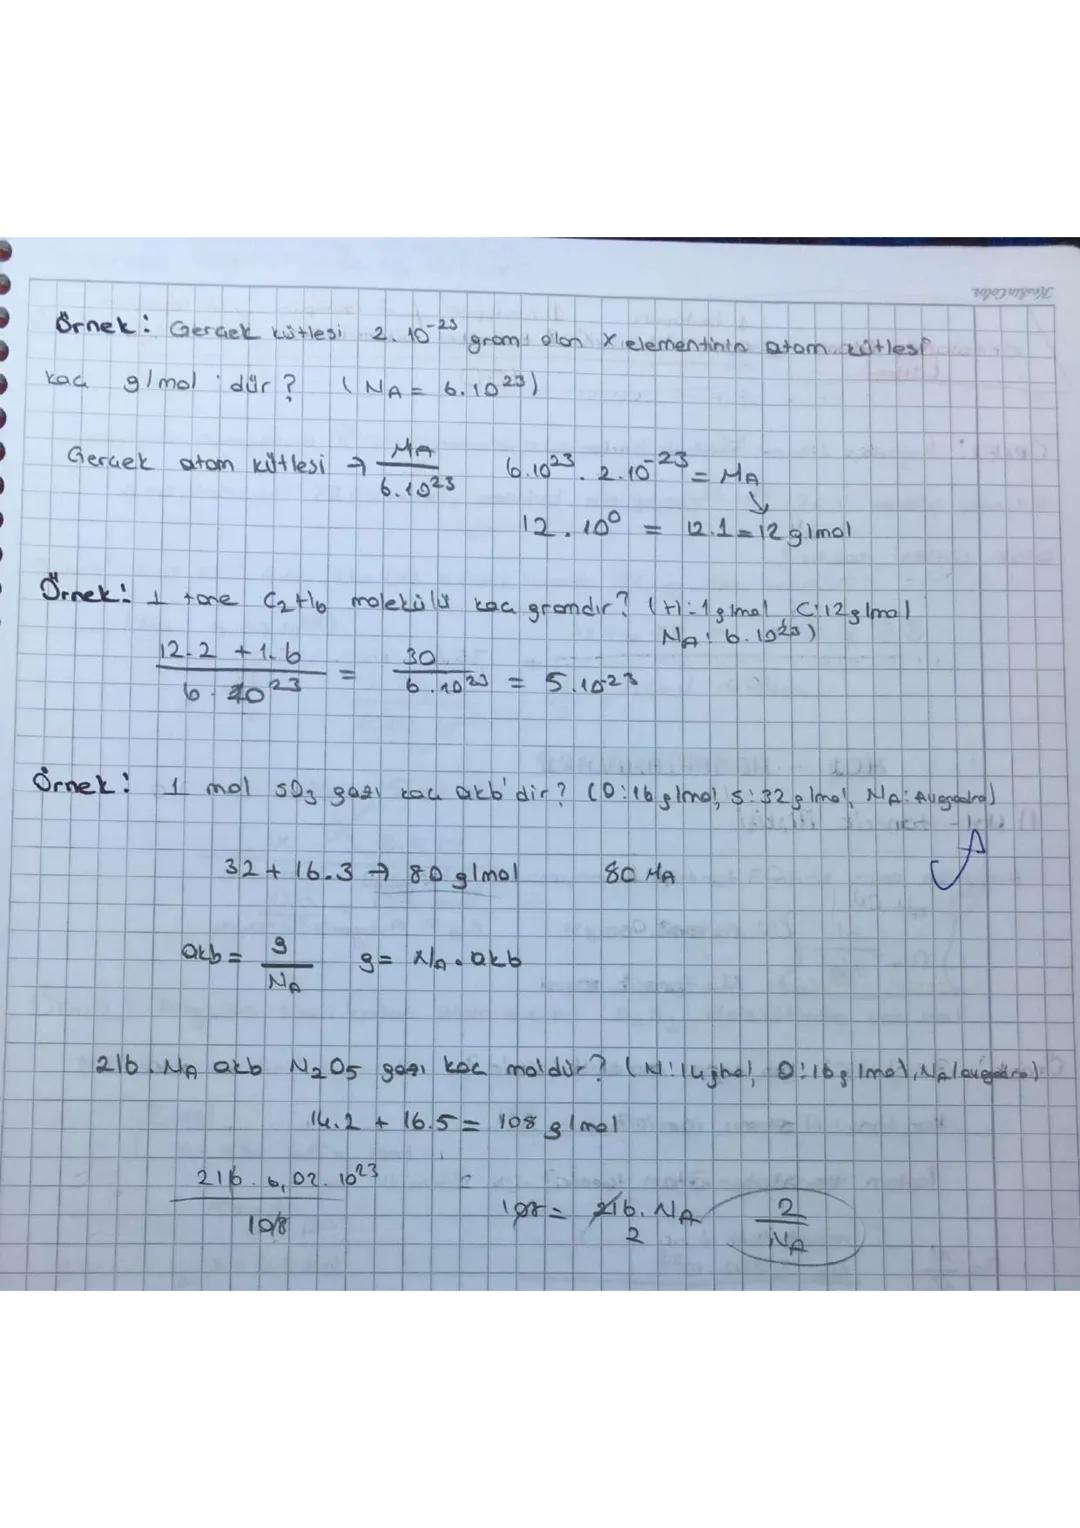 Keskin Color
Örnek: Gerçek kütlesi 2.10⁻²³ gram olan X elementinin atom kütlesi
kaç g/mol dür? (NA = 6.10²³)
Gerçek atom kütlesi → MA / 6.10²³ 6.10²³ . 2.10⁻²³ = MA
12.10⁰ = 12.1 = 12 g/mol
Örnek: 1 tane C₂H₆ molekülü kaç gramdır? (H:1g/mol, C:12g/mol
NA: 6.10²³)
12.2 + 1.6 / 6.10²³ = 30 / 6.10²³ = 5.10⁻²³
Örnek: 1 mol SO₃ gazı kaç akb'dir? (O:16g/mol, S:32g/mol, NA: Avogadro)
32 + 16.3 → 80 g/mol 80 NA
akb = g / NA g = NA . akb
216 . NA akb N₂O₅ gazı kaç moldür? (N:14g/mol, O:16g/mol, NA(avogadro)
14.2 + 16.5 = 108 g/mol
216 . 6,02 . 10²³ / 108
108 = 216 . NA 2 2 / NA